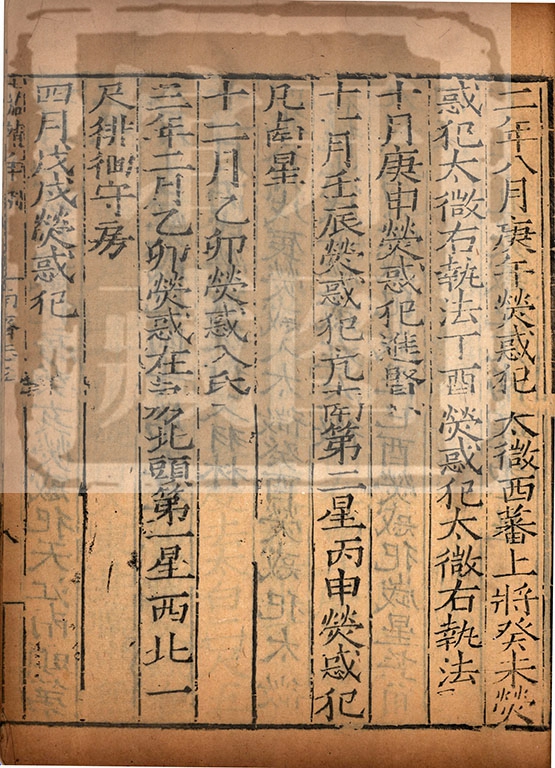 二年八月庚午熒惑犯太微西蕃上將癸未熒
惑犯太微右執法丁酉熒惑犯太微右執法
十月庚申熒惑犯進賢
十一月壬辰熒惑犯亢南第二星丙申熒惑犯
凡南星
十二月乙卯熒惑入氐
三年二月乙卯熒惑在房北頭第一星西北一
尺徘徊守房
四月戊戌熒惑犯